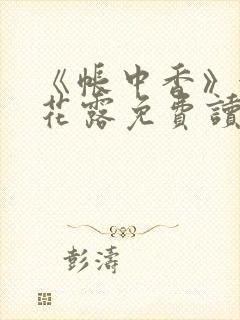 《帳中香》
花露免費讀
彭濤